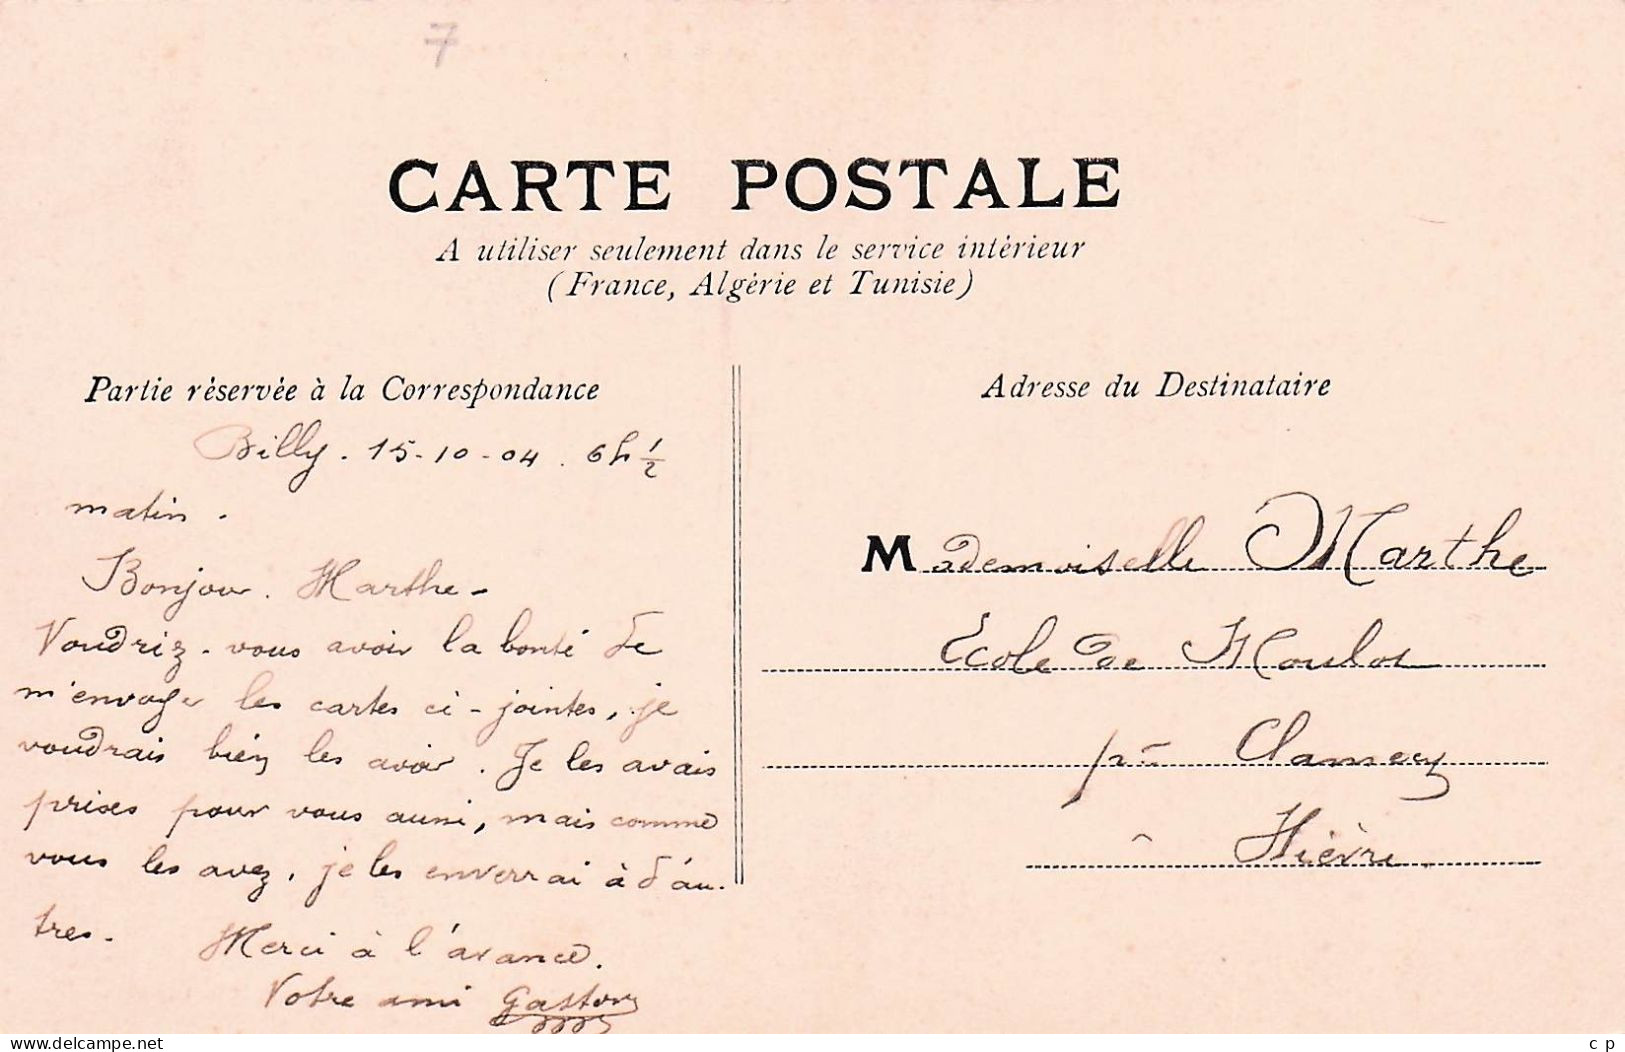 7
CARTE POSTALE
A utiliser seulement dans le service intérieur
(France, Algérie et Tunisie)
Partie réservée à la Correspondance
Billy. 15-10-04. 6h 1/2
matin.
Bonjour. Marthe-
Voudriz-vous avoir la bonté de
m'envoyer les cartes ci-jointes, je
voudrais bien les avoir. Je les avais
prises pour vous aussi, mais comme
vous les avez, je les enverrai à d'au-
tres.
Merci à l'avance.
Votre ami Gaston
Adresse du Destinataire
Mademoiselle Marthe
École de Moulot
pr Clamecy
Nièvre.
www.delcampe.net
c p